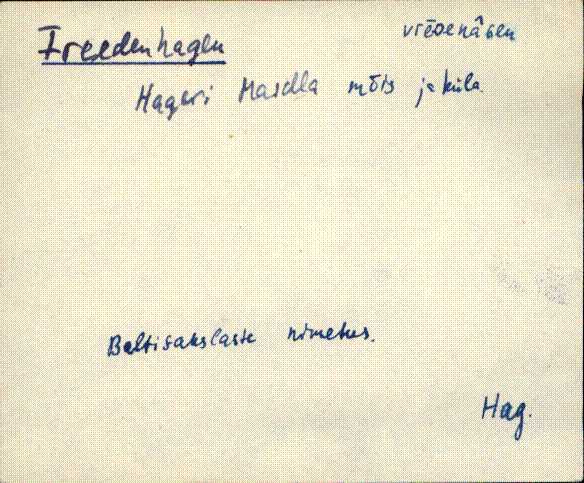 Freedenhagen
Hageri Maidla mõis ja küla.
Baltisakslaste nimetus.
Hag.